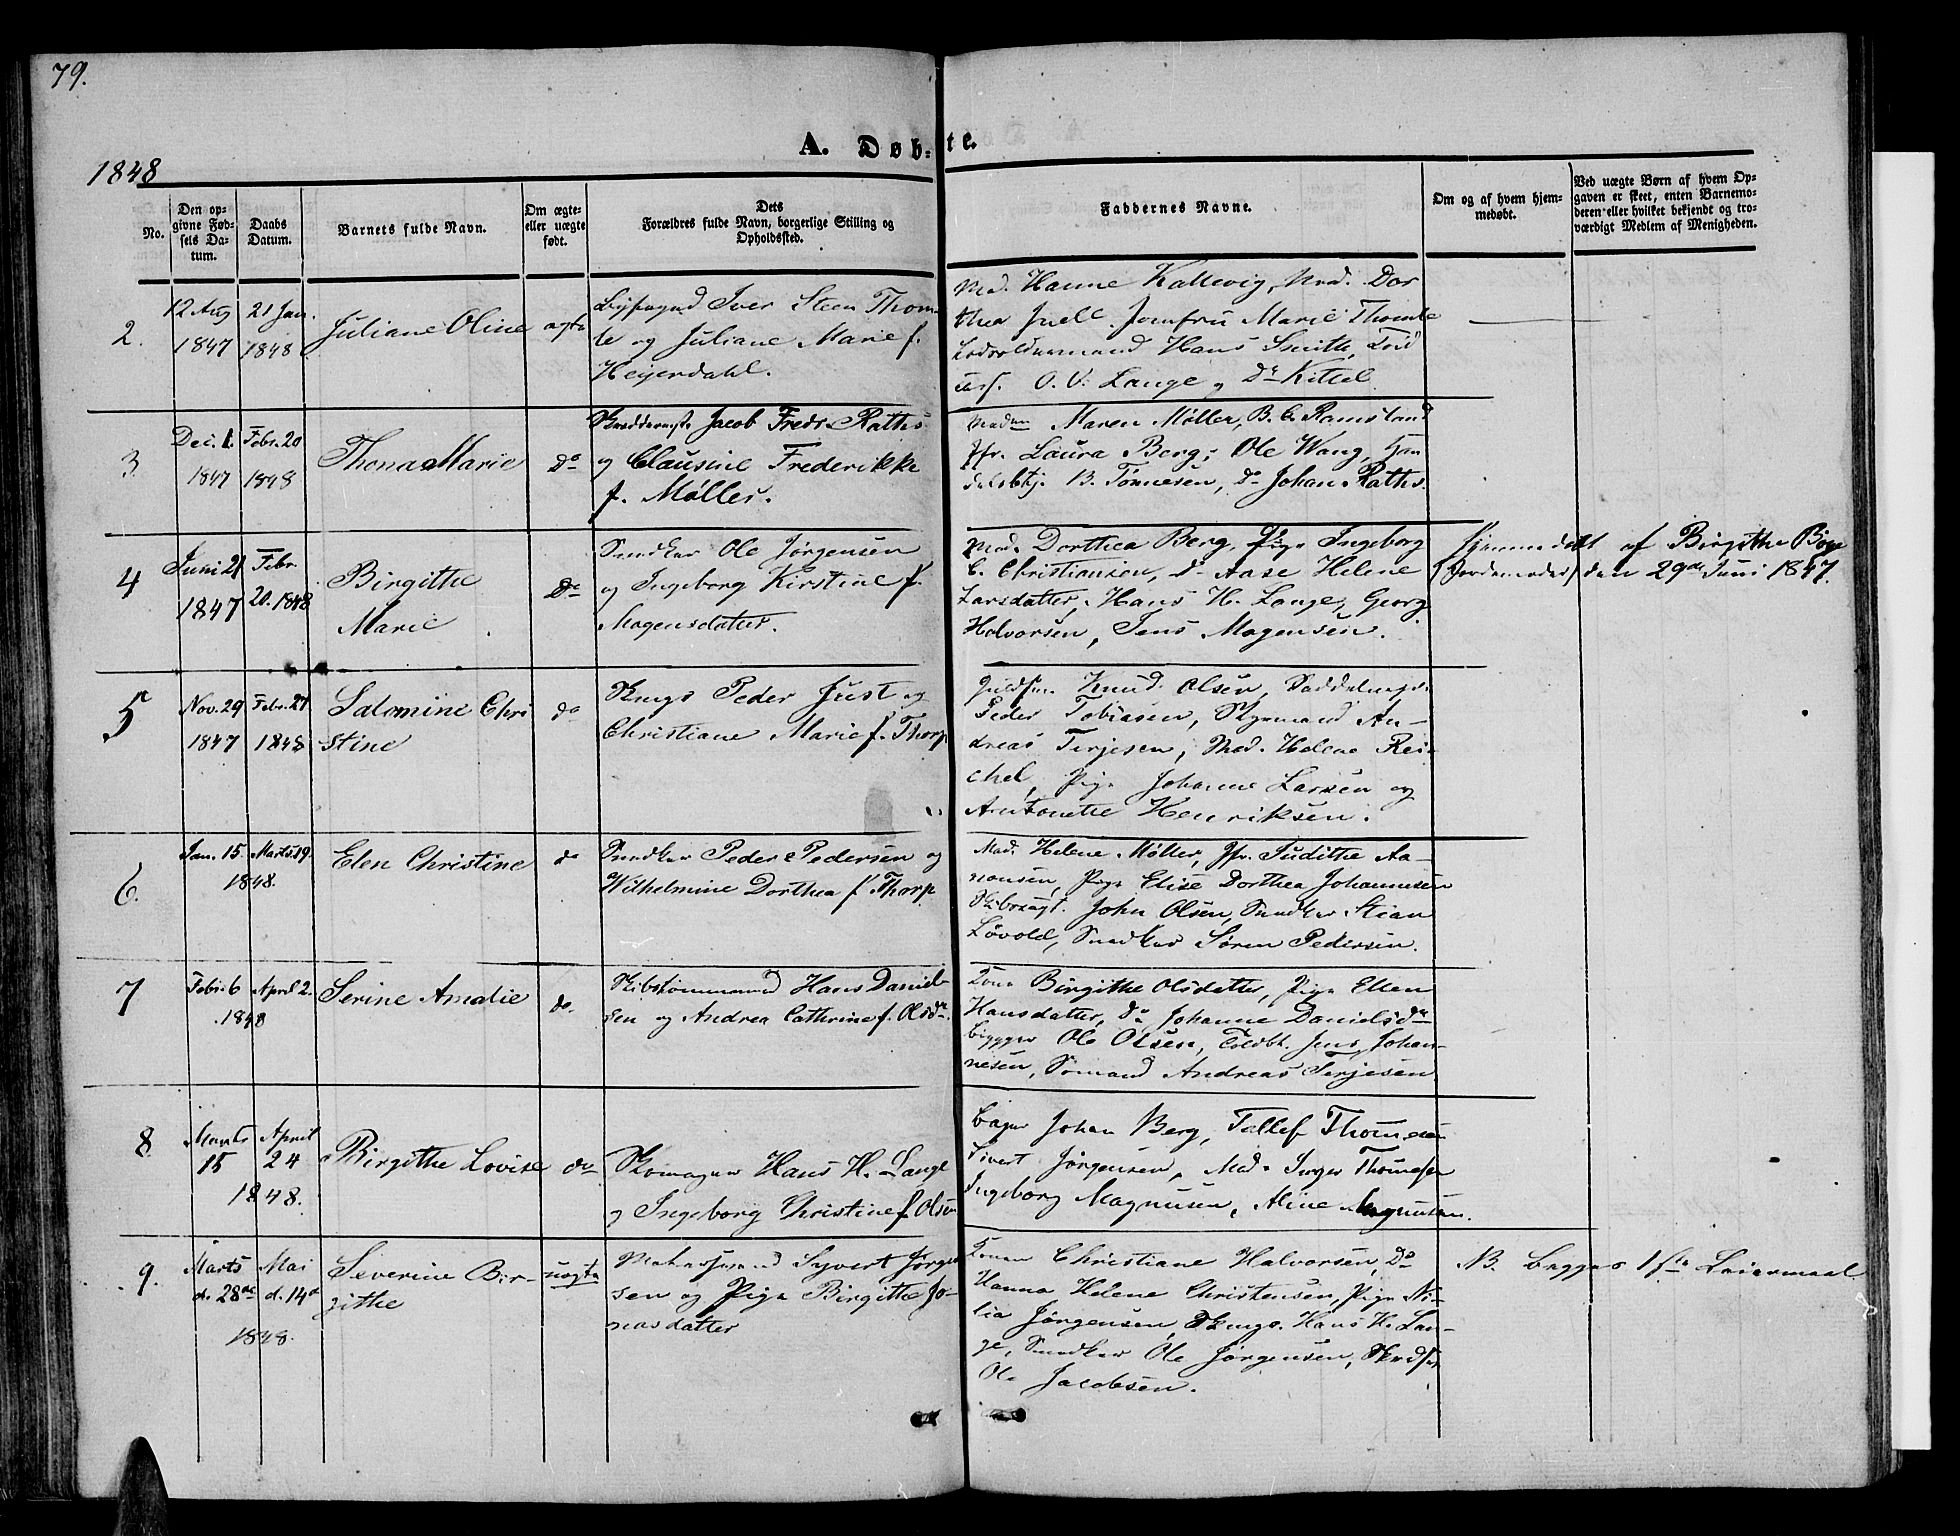 79.
A. Døb-te.
1848
No.
Den op-
givne Fød-
sels Da-
tum.
Daabs
Datum.
Barnets fulde Navn.
Om ægte-
eller uægte
født.
Dets
Forældres fulde Navn, borgerlige Stilling og
Opholdssted.
Faddernes Navne.
Om og af hvem hjem-
medøbt.
Ved uægte Børn af hvem Op-
gaven er skeet, enten Barnemo-
deren eller hvilket bekjendt og tro-
værdigt Medlem af Menigheden.
2.
12 Aug
1847
21 Jan.
1848
Juliane Oline
ægte
Byfogd Iver Steen Thom-
le og Juliane Marie f.
Heyerdahl.
Mad. Hanne Kallevig, Mad. Dor
thea Juell. Jomfru Marie Thomle
Lodsoldermand Hans Smith, Told
O. V. Lange og Dr Kittel.
3.
Dec. 1.
1847
Febr. 20
1848
Thona Marie
Do
Jacob Fredr. Raths
og Clausine Frederikke
f. Møller.
Madm Maren Møller, B. C. Ramsland
Jfr. Laura Berg; Ole Wang, Han
delsbtj. B. Tönnesen, do Johan Raths.
4
Juni 21
1847
Febr.
20. 1848
Birgithe
Marie
Do
Snedker Ole Jørgensen
og Ingeborg Kirstine f.
Mogensdatter.
Mad. Dorthea Berg, Pige Ingeborg
C. Christiansen, do Aase Helene
Larsdatter, Hans H. Lange, Georg
Halvorsen, Jens Mogensen.
Hjemmedøbt af Birgithe Bøe
(Jordemoder) den 29de Juni 1847.
5
Nov. 29
1847
Febr. 27
1848
Salomine Chri
stine
do
Skmgr Peder Just og
Christiane Marie f. Thorp
Guldsm. Knud Olsen, Saddelmgr.
Peder Tobiasen, Styrmand An-
dreas Terjesen, Mad. Helene Rei-
chel, Pige Johanne Larsen og
Antonette Henriksen.
6.
Jan. 15.
Marts 19.
1848.
Elen Christine
do
Snedker Peder Pedersen og
Wilhelmine Dorthea f. Thorp
Mad. Helene Møller, Jfr. Judithe Aa-
nonsen, Pige Elise Dorthea Johannesen
John Olsen, Snedker Stian
Løvold, Snedker Søren Pedersen.
7
Febr. 6
April 2.
1848
Serine Amalie
do.
Skibstømmermand Hans Daniel-
sen og Andrea Cathrine f. Olsdtr.
Kone Birgithe Olsdatter, Pige Ellen
Hansdatter, do Johanne Danielsdtr
Brygger Ole Olsen, Toldbt. Jens Johan-
nesen, Sømand Andreas Terjesen
8.
Marts
15
April
24
1848.
Birgithe Lovise
do
Skomager Hans H. Lange
og Ingeborg Christine f. Olsen
Bager Johan Berg, Tallef Thomesen
Sivert Jørgensen, Mad. Inger Thomesen
Ingeborg Magnusen, Aline Magnusen.
9.
Marts
d. 28de
Mai
d. 14d
1848.
Severine Bir-
githe
uægte
Matros Syvert Jörgen
sen og Pige Birgithe Jo-
nasdatter
Konen Christiane Halvorsen, Do
Hanna Helene Christensen, Pige
Jørgensen, Skmgr. Hans H. Lan-
ge, Snedker Ole Jørgensen,
Ole Jacobsen.
NB. Begges 1ste Leiermaal